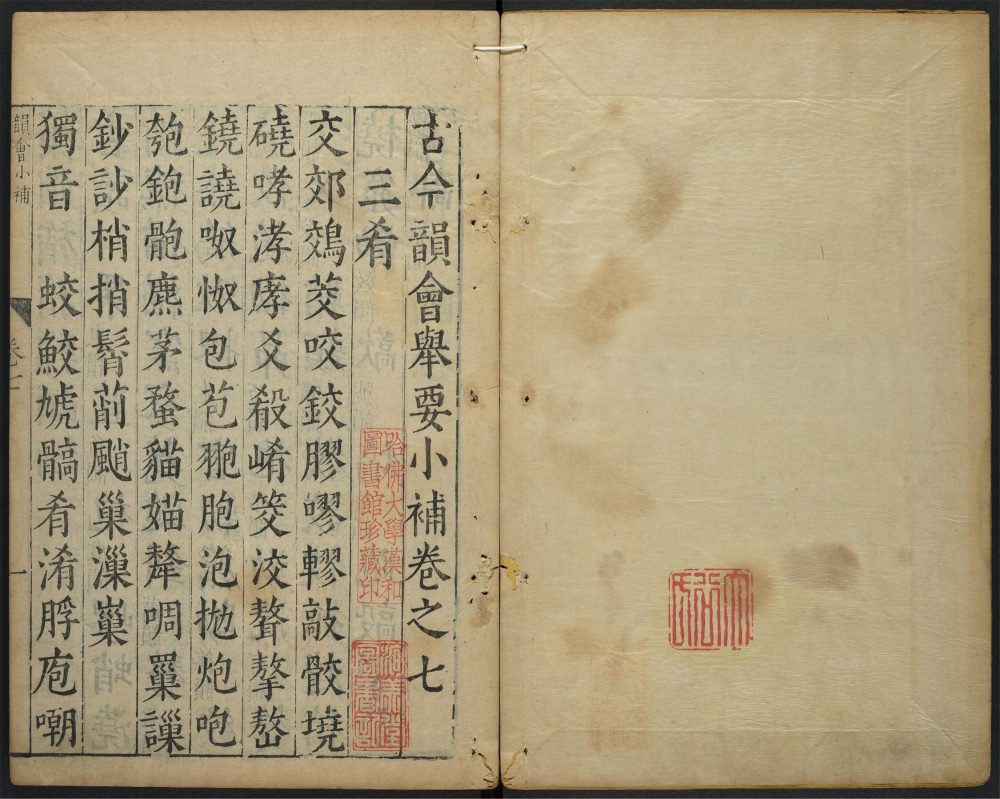 古今韻會舉要小補卷之七
三肴
交郊鵁茭咬鉸膠嘐轇敲骹墝
磽哮涍庨爻殽崤筊洨聱摮嶅
鐃譊呶怓包苞胞泡拋炮咆
匏鉋骲麃茅蝥貓媌犛啁罺謀
鈔訬梢捎髾莦颵巢漅
獨音 蛟鮫虓髇肴淆脬庖嘲
韻會小補
卷七
一
哈佛大學漢和圖書館珍藏印